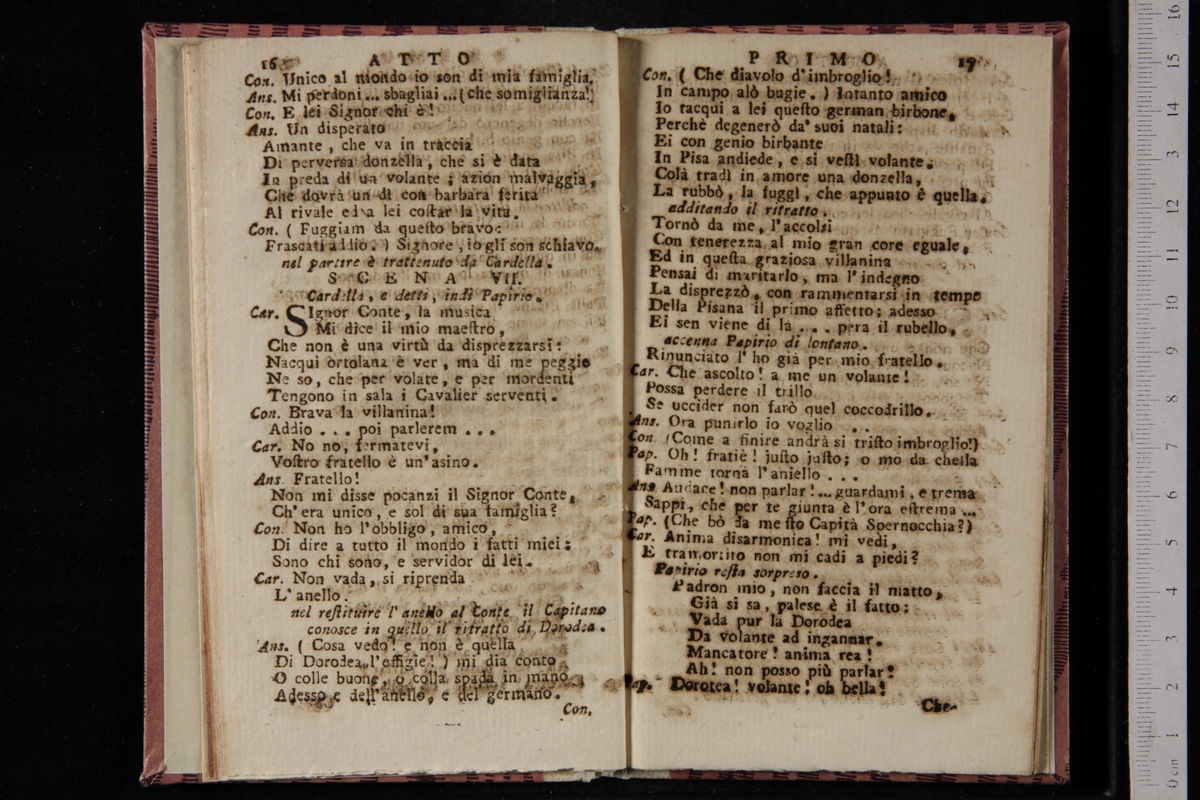 16 ATTO
Con. Unico al mondo io son di mia famiglia.
Ans. Mi perdoni... sbagliai... (che somiglianza!)
Con. E lei Signor chi è!
Ans. Un disperato
Amante, che va in traccia
Di perversa donzella, che si è data
In preda di un volante; azion malvaggia,
Che dovrà un dì con barbara ferita
Al rivale ed a lei coſtar la vita.
Con. ( Fuggiam da queſto bravo:
Frascati addio. ) Signore, io gli son schiavo.
nel partire è trattenuto da Cardella.
SCENA VII.
Cardella, e detti, indi Papirio.
Car. SIgnor Conte, la musica
Mi dice il mio maeſtro,
Che non è una virtù da disprezzarsi:
Nacqui ortolana è ver, ma di me peggio
Ne so, che per volate, e per mordenti
Tengono in sala i Cavalier serventi.
Con. Brava la villanina!
Addio . . . poi parlerem . . .
Car. No no, fermatevi,
Voſtro fratello è un'asino.
Ans. Fratello!
Non mi disse pocanzi il Signor Conte,
Ch'era unico, e sol di sua famiglia?
Con. Non ho l'obbligo, amico,
Di dire a tutto il mondo i fatti miei:
Sono chi sono, e servidor di lei.
Car. Non vada, si riprenda
L'anello.
nel reſtituire l'anello al Conte il Capitano
conosce in quello il ritratto di Dorodea.
Ans. ( Cosa vedo! e non è quella
Di Dorodea l'effigie! ) mi dia conto
O colle buone, o colla spada in mano
Adesso e dell'anello, e del germano.
Con.
PRIMO 17
Con. ( Che diavolo d'imbroglio!
In campo alò bugie. ) Intanto amico
Io tacqui a lei queſto german birbone,
Perchè degenerò da' suoi natali:
Ei con genio birbante
In Pisa andiede, e si veſtì volante.
Colà tradì in amore una donzella,
La rubbò, la fuggì, che appunto è quella.
additando il ritratto.
Tornò da me, l'accolsi
Con tenerezza al mio gran core eguale,
Ed in queſta graziosa villanina
Pensai di maritarlo, ma l'indegno
La disprezzò, con rammentarsi in tempo
Della Pisana il primo affetto; adesso
Ei sen viene di là . . . pera il rubello,
accenna Papirio di lontano.
Rinunciato l'ho già per mio fratello.
Car. Che ascolto! a me un volante!
Possa perdere il trillo
Se uccider non farò quel coccodrillo.
Ans. Ora punirlo io voglio . .
Con. (Come a finire andrà si triſto imbroglio!)
Pap. Oh! fratiè! juſto juſto; o mo da chella
Famme tornà l'aniello . . .
Ans. Audace! non parlar!... guardami, e trema
Sappi, che per te giunta è l'ora eſtrema ...
Pap. (Che bò da me ſto Capità Spernocchia?)
Car. Anima disarmonica! mi vedi,
E tramortito non mi cadi a piedi?
Papirio reſta sorpreso.
Padron mio, non faccia il matto,
Già si sa, palese è il fatto:
Vada pur la Dorodea
Da volante ad ingannar.
Mancatore! anima rea!
Ah! non posso più parlar!
Pap. Dorotea! volante! oh bella!
Che-